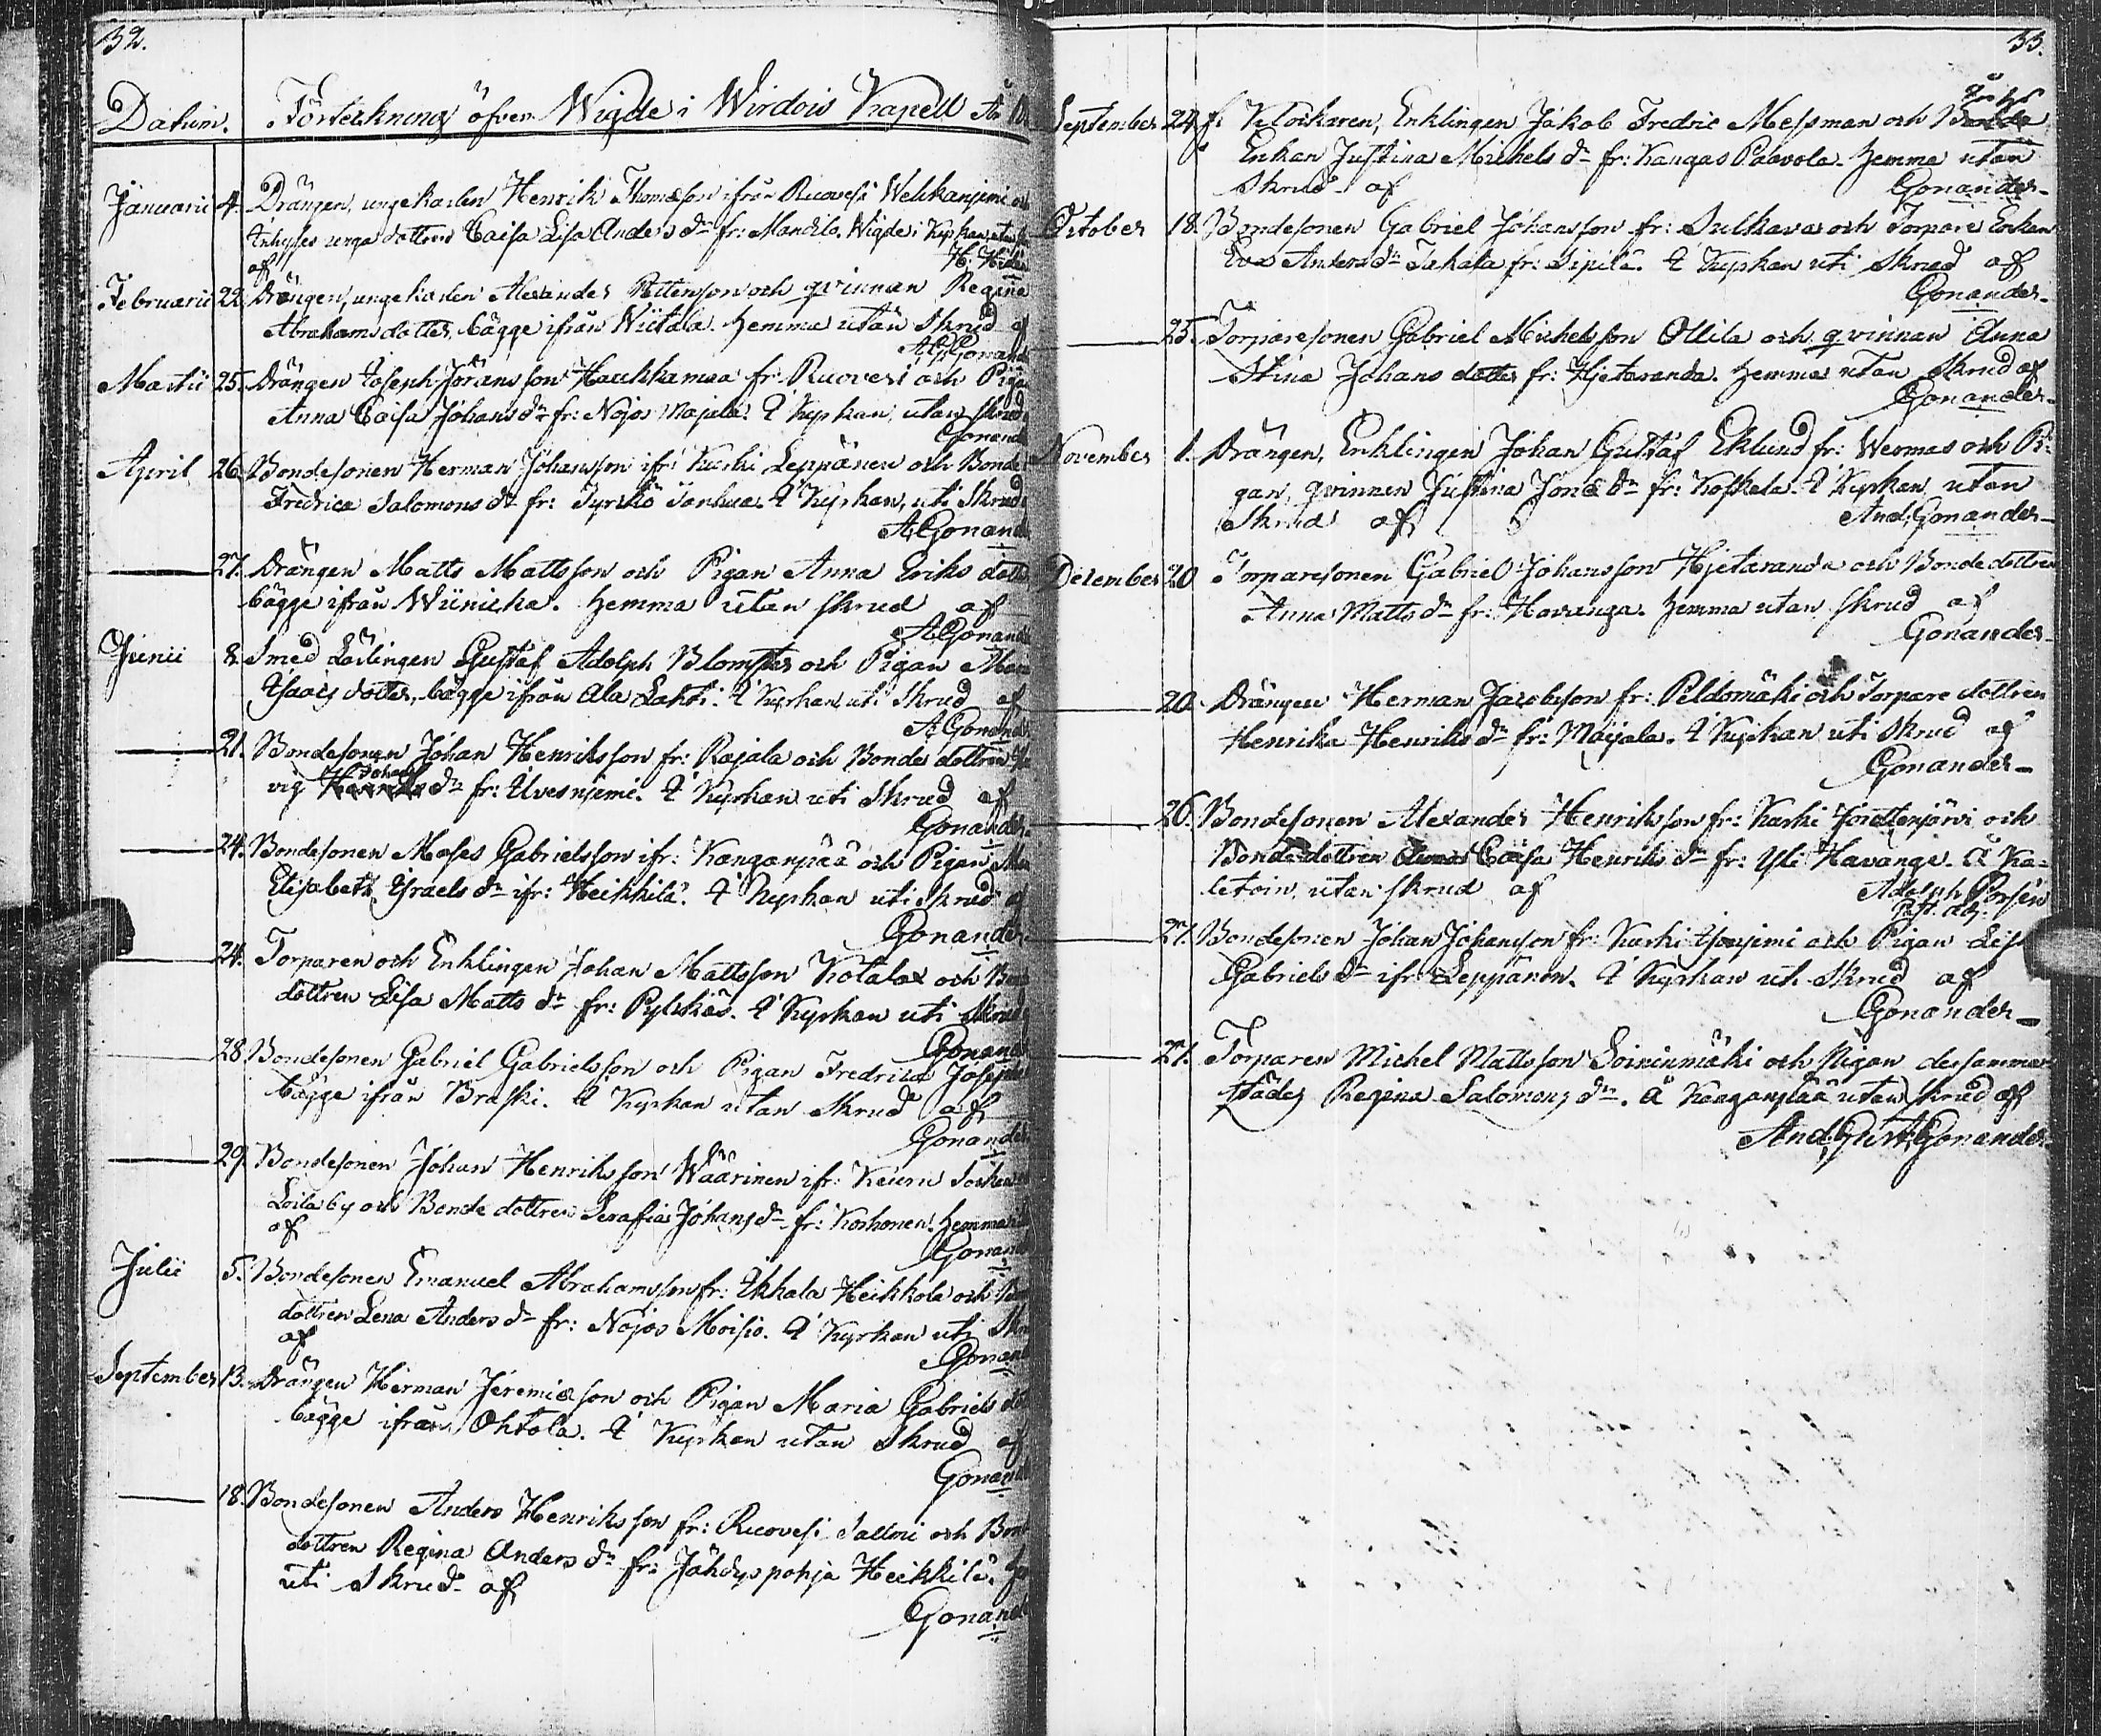 32.
Datum. Förteckning öfver Wigde i Wirdois Kapell År
Januarii 4. Drängen, ungekarlen Henrik Thomasson ifrån Ruovesi Welikanjemi och
Inhyses unga dottren Caisa Lisa Anders dr fr: Mandila. Wigde i Kyrkan utan
af H. H
Februarii 22. Drängen, ungekarlen Alexander Petterson och qvinnan Regina
Abrahams dotter, bägge ifrån Wiitala. Hemma utan Skrud af
A G Gonand
Martii 25. Drängen Joseph Jöransson Haukkamaa fr: Ruovesi och Piga
Anna Caisa Johans dr fr: Nojos Majala. I Kyrkan, utan Skrud
Gonand
April 26. Bondesonen Herman Johansson ifr: Kurki Leppänen och Bonde
Fredrica Salomons dr fr: Jyrkö Jankua. I Kyrkan, uti Skrud
A Gonand
27. Drängen Matts Mattsson och Pigan Anna Eriks dott
bägge ifrån Wiinicka. Hemma utan skrud af
A Gonand
Junii 8. Smed Lärlingen Gustaf Adolph Blomster och Pigan Mar
Isaacs dotter, bägge ifrån Ala Lahti. I Kyrkan uti Skrud af
A Gonand
21. Bondesonen Johan Henriksson fr: Rajala och Bonde dottren He
vig Johans dr fr: Uvesnjemi. I Kyrkan uti Skrud af
Gonander
24. Bondesonen Moses Gabrielsson ifr: Kanganpää och Pigan Ma
Elisabeth Israels dr ifr: Heikkilä. I Kyrkan uti Skrud af
Gonander
24. Torparen och Enklingen Johan Mattsson Kotala och Bon
dottren Lisa Matts dr fr: Pylskäs. I Kyrkan uti Skrud
Gonand
28. Bondesonen Gabriel Gabrielsson och Pigan Fredrica Joseph
bägge ifrån Braski. I Kyrkan utan Skrud af
Gonander
29. Bondesonen Johan Henriksson Wäärinen ifr: Keuru Socken
Loila by och Bonde dottren Serafia Johans dr fr: Korhonen. Hemma
af Gonand
Julii 5. Bondesonen Emanuel Abrahamsson fr: Ikkala Heikkola och Bon
dottren Lena Anders dr fr: Nojos Moisio. I Kyrkan uti Skr
af Gonand
September 13. Drängen Herman Jeremiæson och Pigan Maria Gabriels dot
bägge ifrån Ohtola. I Kyrkan utan Skrud af
Gonand
18. Bondesonen Anders Henriksson fr: Ruovesi Salmi och Bon
dottren Regina Anders dr fr: Jähdyspohja Heikkilä.
uti Skrud af
Gonand
33.
September 27. f. Klockaren, Enklingen Jakob Fredric Messman och
Enkan Justina Michels dr fr: Kangas Paavola. Hemma utan
Skrud af Gonander
October 18. Bondesonen Gabriel Johansson fr: Sulkava och Torpare Enkan
Eva Anders dr Takala fr: Sipilä. I Kyrkan uti Skrud af
Gonander
25. Torparesonen Gabriel Michelsson Ollila och qvinnan Anna
Stina Johans dotter fr: Hjetaranda. Hemma utan Skrud af
Gonander
November 1. Drängen, Enklingen Johan Gustaf Eklund fr: Wermas och Pi-
gan, qvinnan Justina Jonæ dr fr: Koskela. I Kyrkan utan
Skrud af And. Gonander
December 20 Torparesonen Gabriel Johansson Hjetaranda och Bonde dottren
Anna Matts dr fr: Havanga. Hemma utan skrud af
Gonander
20. Drängen Herman Jacobsson fr: Peldomäki och Torpare dottren
Henrika Henriks dr fr: Majala. I Kyrkan uti Skrud af
Gonander
26. Bondesonen Alexander Henriksson fr: Kurki och
Bonde dottren Caisa Henriks dr fr: Yli Havanga. Å Ka-
letoin, utan skrud af Adolph Forsén
Past. adj.
27. Bondesonen Johan Johansson fr: Kurki och Pigan Lisa
Gabriels dr ifr: Leppänen. I Kyrkan uti Skrud af
Gonander
27. Torparen Michel Mattsson Soininmäki och Pigan dersammar
städes Regina Salomons dr. Å Kanganpää utan Skrud af
And. Gust. Gonander